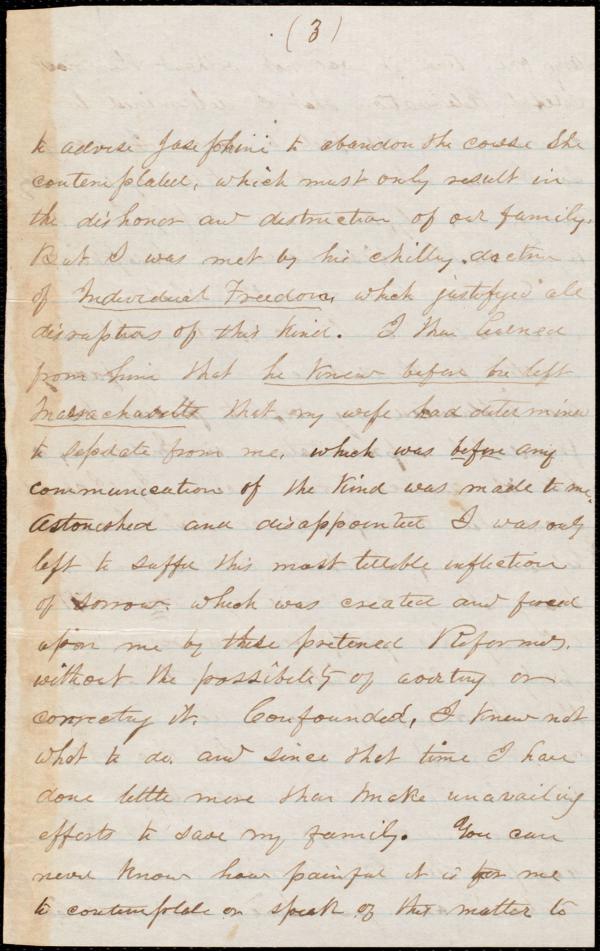 (3)
to advise Josephine to abandon the course she
contemplated, which must only result in
the dishonor and destruction of our family.
But I was met by his chilly doctrine
of Individual Freedom, which justifyed all
disruptions of this kind. I then learned
from him that he knew before he left
Massachusetts that my wife had determined
to sepdate from me, which was before any
communication of the kind was made to me.
Astonished and disappointed I was only
left to suffer this most terrible infliction
of sorrow, which was created and forced
upon me by these pretened Reformers,
without the possibility of averting or
correcting it. Confounded, I knew not
what to do, and since that time I have
done little more than make unavailing
efforts to save my family. You can
never know how painful it is for me
to contemplate or speak of this matter to